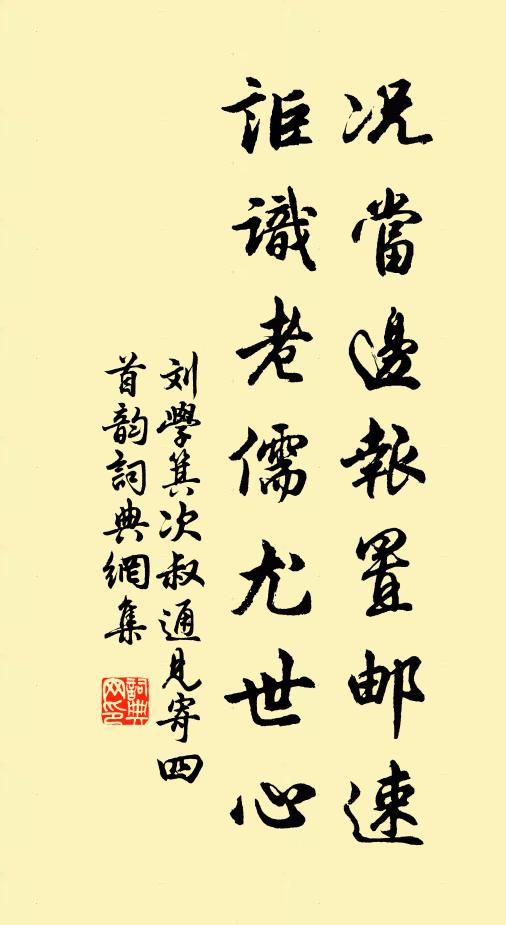 况當邊報置邮速
詎識老儒尤世心
刘學箕次叔通見寄四
首韵詞典網集
詞典
网印